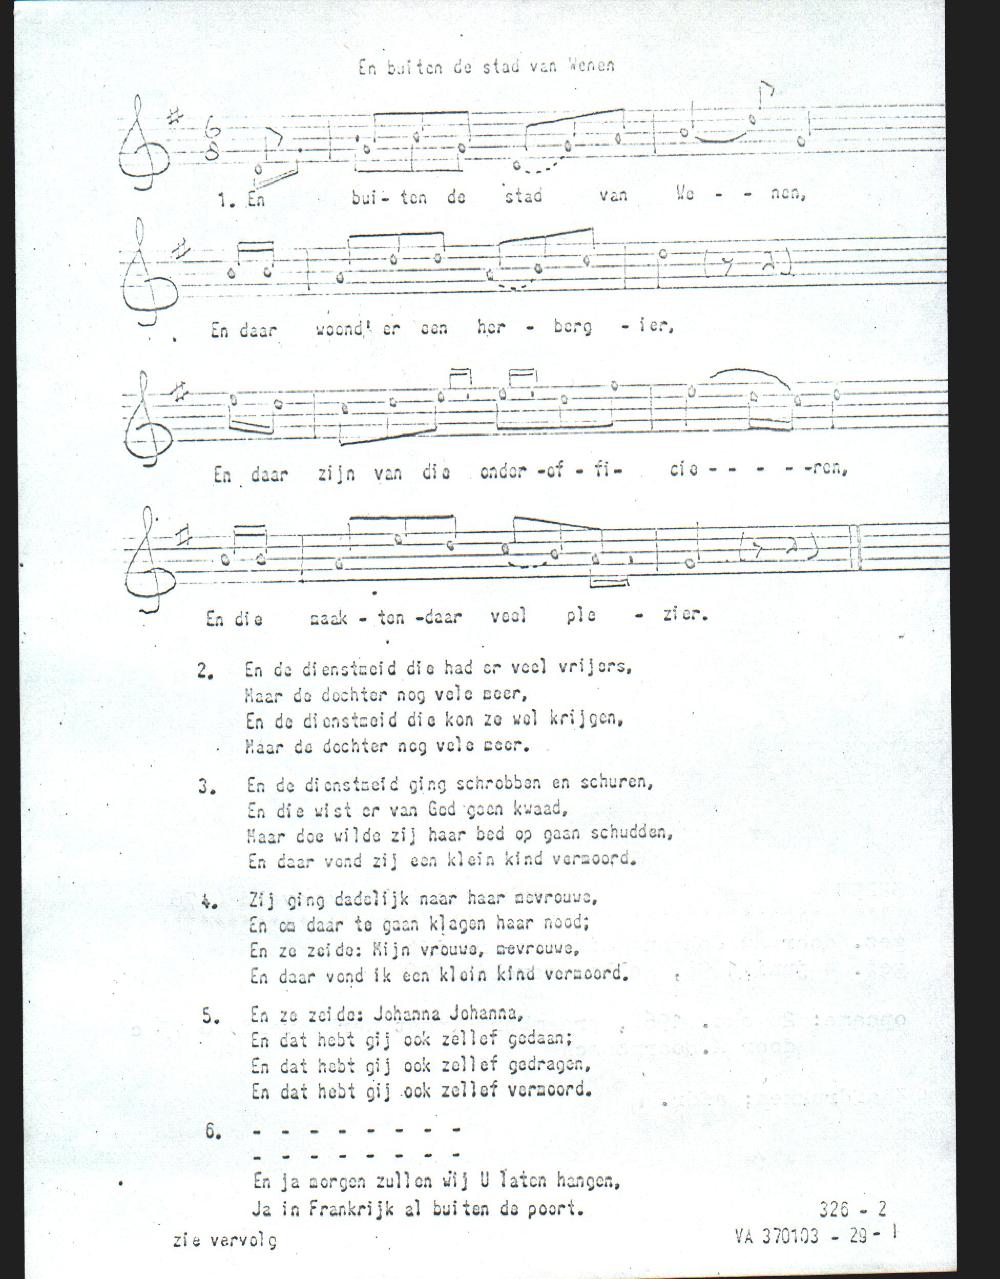 En buiten de stad van Wenen
6
8
1. En bui- ten de stad van We - - nen,
En daar woond' er een her - berg - ier,
En daar zijn van die onder -of - fi- cie - - - - -ren,
En die maak - ten -daar veel ple - zier.
2. En de dienstmeid die had er veel vrijers,
Maar de dochter nog vele meer,
En de dienstmeid die kon ze wel krijgen,
Maar de dochter nog vele meer.
3. En de dienstmeid ging schrobben en schuren,
En die wist er van God geen kwaad,
Maar doe wilde zij haar bed op gaan schudden,
En daar vond zij een klein kind vermoord.
4. Zij ging dadelijk naar haar mevrouwe,
En om daar te gaan klagen haar nood;
En ze zeide: Mijn vrouwe, mevrouwe,
En daar vond ik een klein kind vermoord.
5. En ze zeide: Johanna Johanna,
En dat hebt gij ook zellef gedaan;
En dat hebt gij ook zellef gedragen,
En dat hebt gij ook zellef vermoord.
6. - - - - - - - -
- - - - - - - -
En ja morgen zullen wij U laten hangen,
Ja in Frankrijk al buiten de poort.
326 - 2
zie vervolg
VA 370103 - 29 - 1